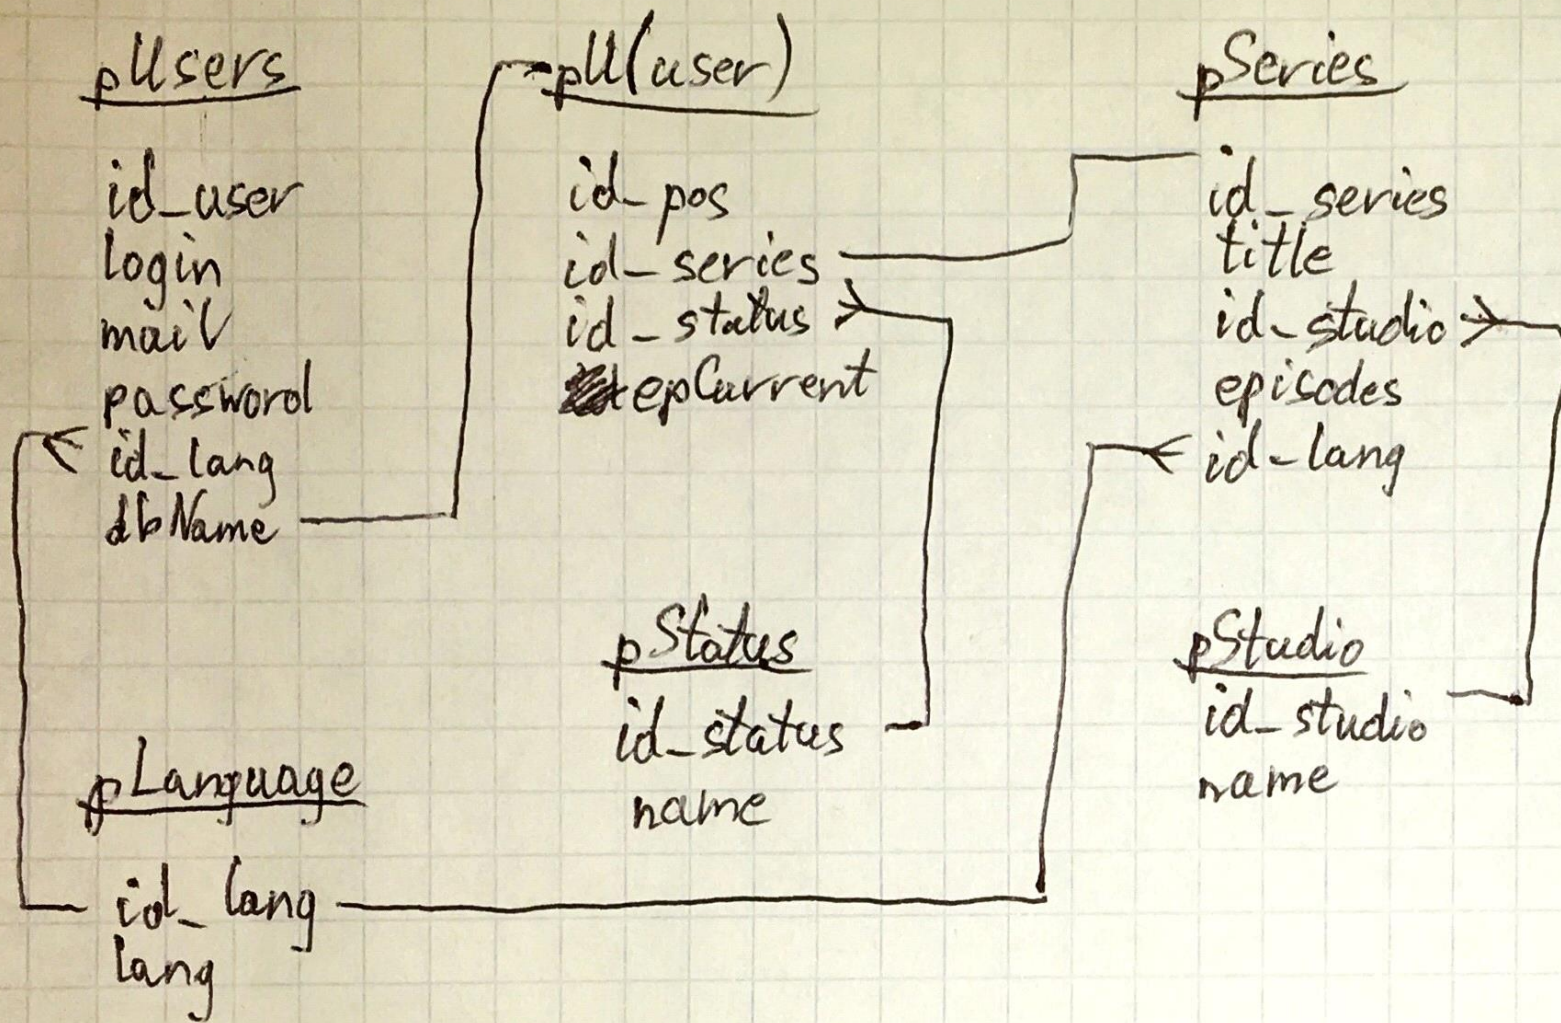 pUsers
id_user
login
mail
password
id_lang
dbName
pU(user)
id_pos
id_series
id_status
epCurrent
pSeries
id_series
title
id_studio
episodes
id_lang
pStatus
id_status
name
pStudio
id_studio
name
pLanguage
id_lang
lang